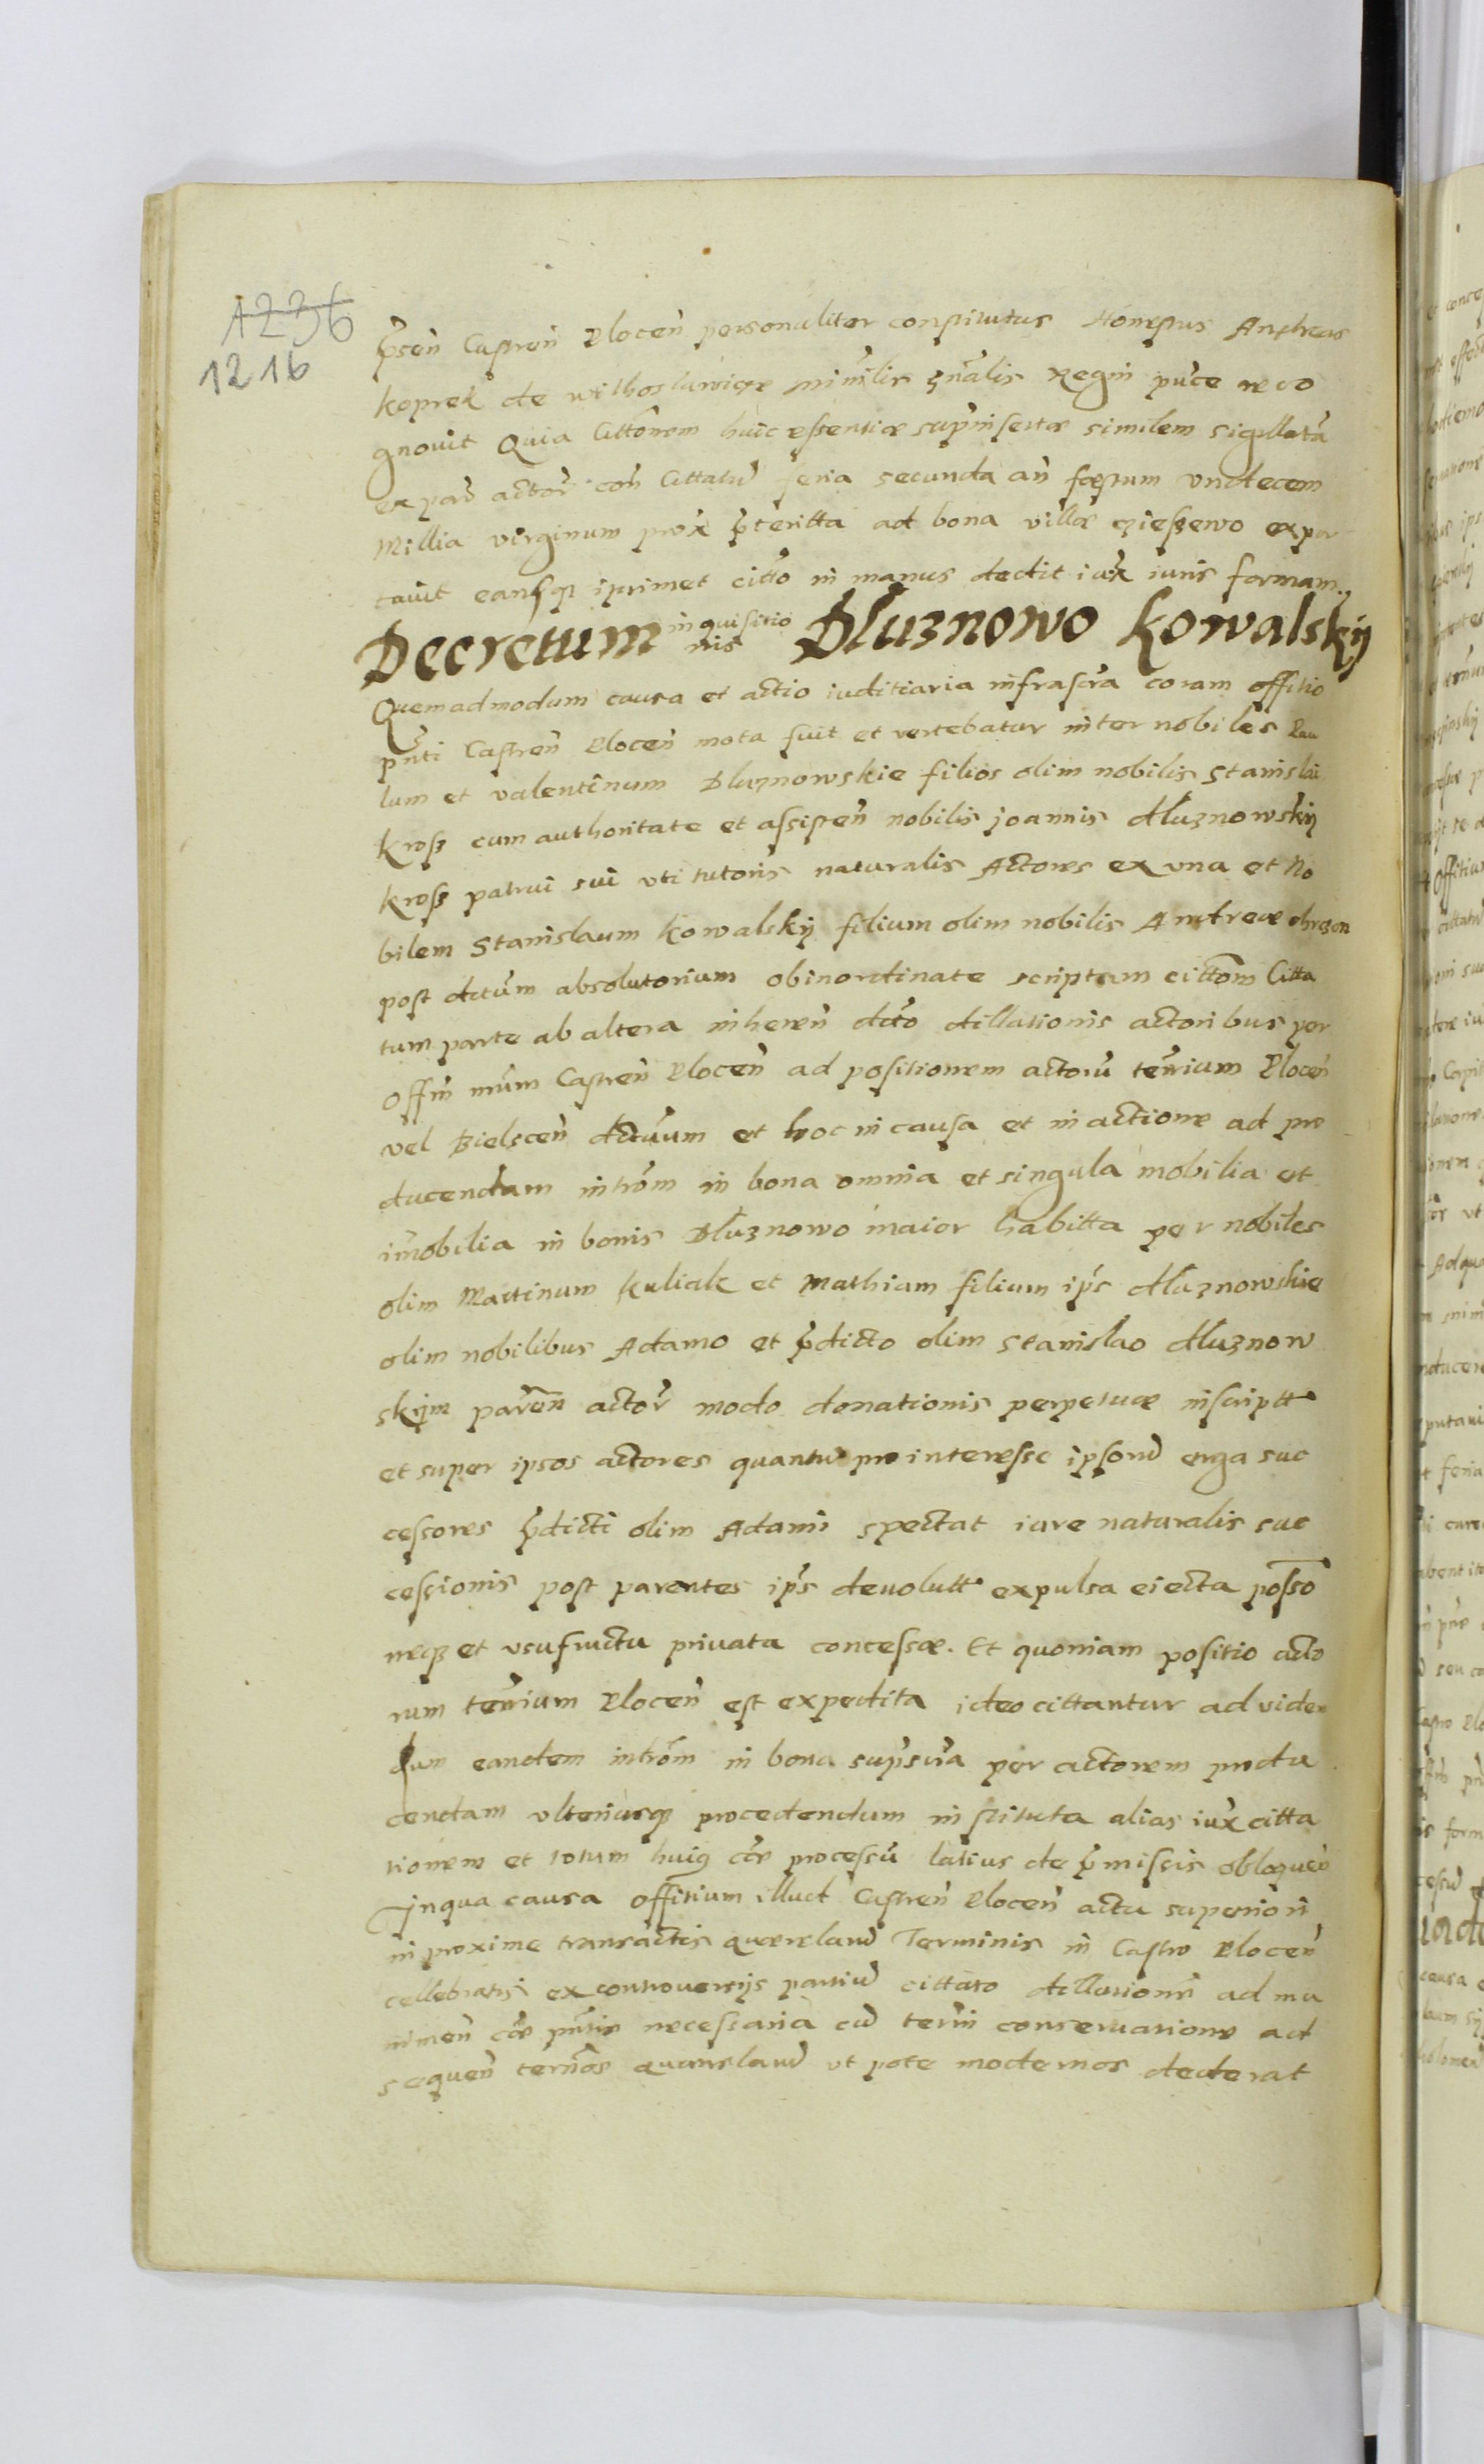 1236
1216
p̃sen̄ Castren̄ Plocen̄ personaliter constitutus Honestus Andreas
koprek de withoslawicze minr̃lis gn̄alis Regni puce reco
gnovit Quia Citto͞nem huic essentiæ sup̃insertæ similem sigillatā
ex par̄ actor̄ con̄ Cittatū feria secunda an̄ festum vndecem
Millia virginum prox̄ p̃teritta ad bona villæ cziessewo expor
tavit eansq̨ ipsimet citt̃o in manus dedit iux̄ iuris formam.
Decretum inquisitio nis Dluznowo Kowalskÿ
Quemadmodum causa et actio iuditiaria infrascr̃a coram offitio
pn̄ti Castren̄ Plocen̄ mota fuit et vertebatur inter nobiles Pau
lum et valentinum Dluznowskie filios olim nobilis Stanislai
kross cum authoritate et assisten̄ nobilis joannis dluznowskÿ
kross patrui sui vti tutoris naturalis Actores ex vna et No
bilem Stanislaum kowalskÿ filium olim nobilis Andreæ
post dctūm absolutorium obinordinate scriptam citto͞m Citta
tum parte ab altera inheren̄ dcto dillationis actoribus per
offm̄ nr̄um Castren̄ Plocen̄ ad positionem actorū terr̄ium Plocen̄
vel Bielscen̄ dctūum et hoc in causa et in actione ad pro
ducendam intro͞m in bona omnia et singula mobilia et
im̄obilia in bonis Dluznowo maior habitta per nobiles
olim Martinum kuliak et Mathiam filium ip̄s dluznowskie
olim nobilibus Adamo et p̃dicto olim Stanislao dluznow
skÿm paren̄ actor̄ modo donationis perpetuæ inscriptt
et super ipsos actores quantū pro interesse ipsorū erga suc
cessores p̃dicti olim Adami spectat iure naturalis suc
cessionis post parentes ip̄s devolutt expulsa eiecta posso͞
neq̨ et vsufructu privata concessæ. Et quoniam positio acto
rum terr̄ium Plocen̄ est expedita ideo cittantur ad viden
dum eandem intro͞m in bona sup̄scr̃a per actorem produ
cendam vlteriusq̨ procedendum instituta alias iux̄ citta
tionem et totum huiꝰ cæ̃ processū latius de p̃missis obloquen̄
Inqua causa offitium illud Castren̄ Plocen̄ actu superiori
in proxime transactis querelarū Terminis in Castro Plocen̄
cellebratis ex controversÿs partiū cittato dillationē ad mu
nimen̄ cæ̃ pn̄tis necessaria cū termi conservatione ad
sequen̄ termo͞s quærelarū vt pote modernos dederat